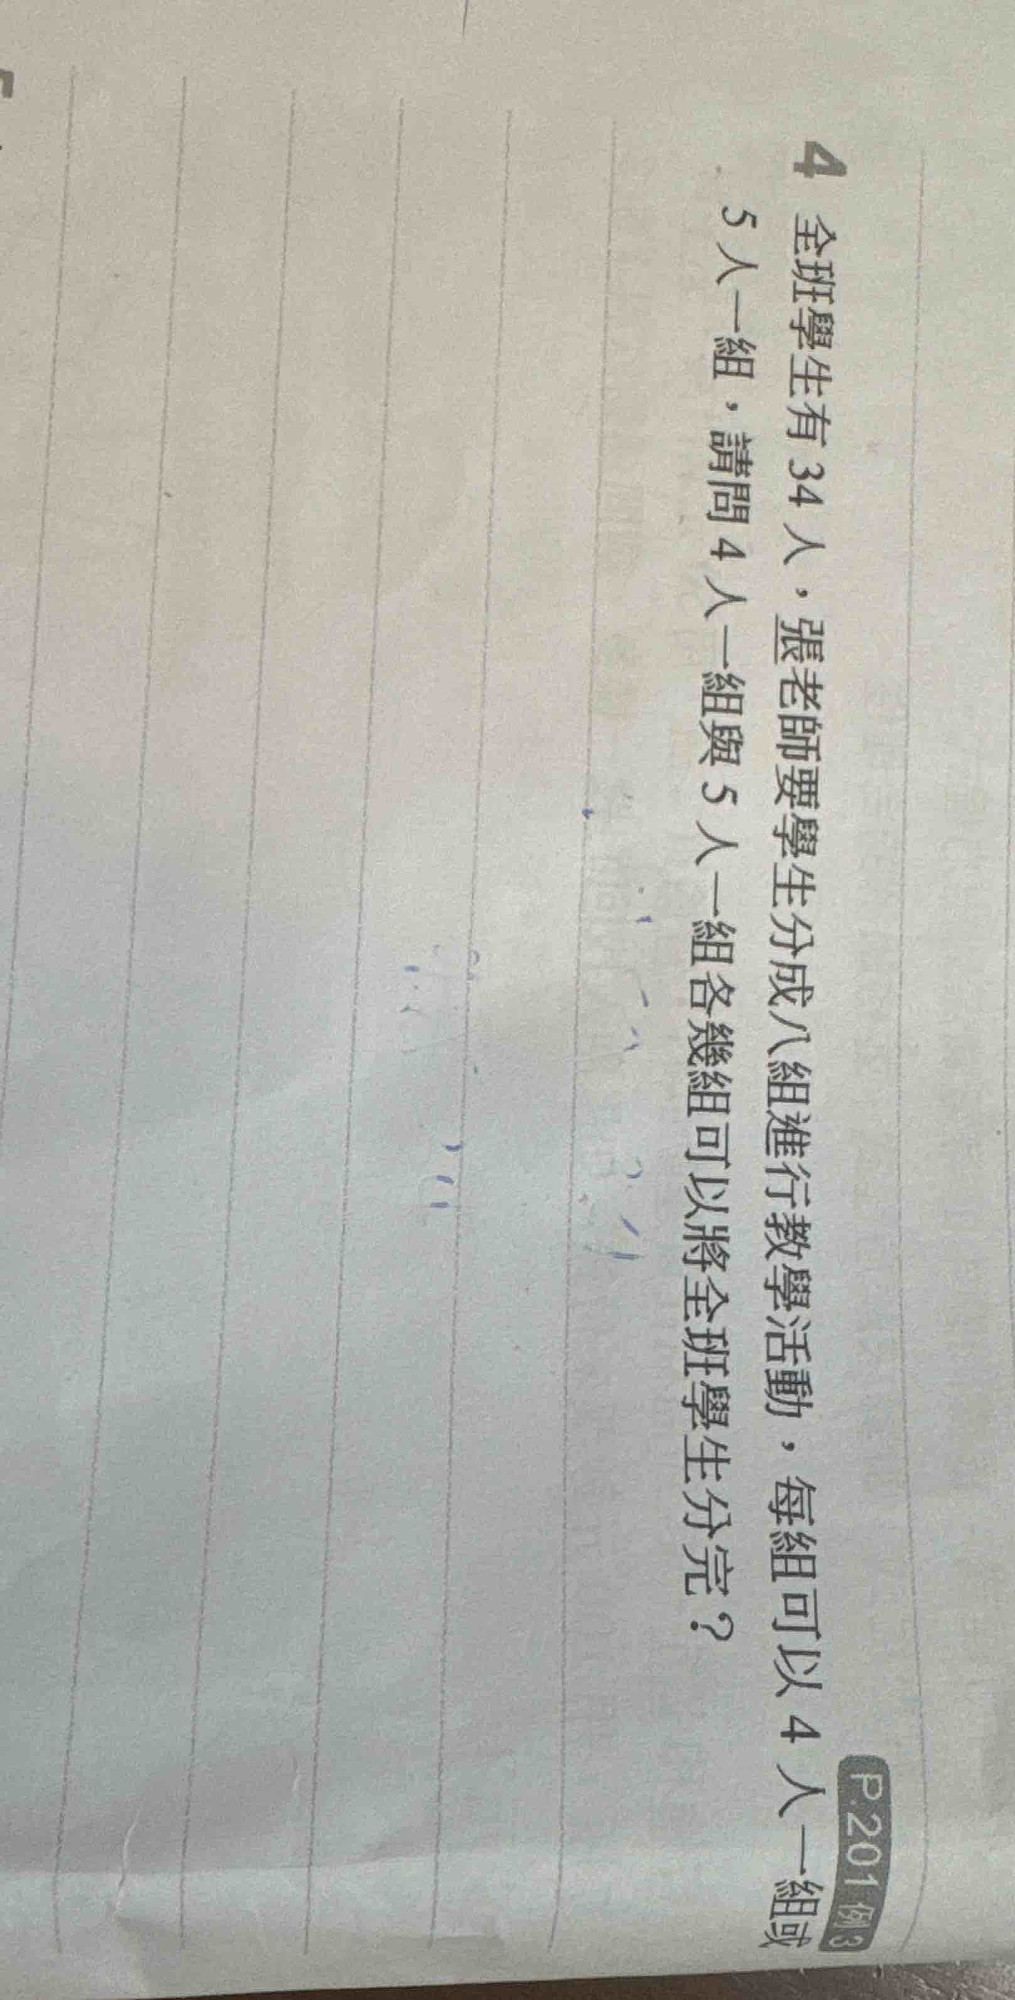 P.201 例3
4 全班學生有 34 人，張老師要學生分成八組進行教學活動，每組可以 4 人一組或
5 人一組，請問 4 人一組與 5 人一組各幾組可以將全班學生分完？